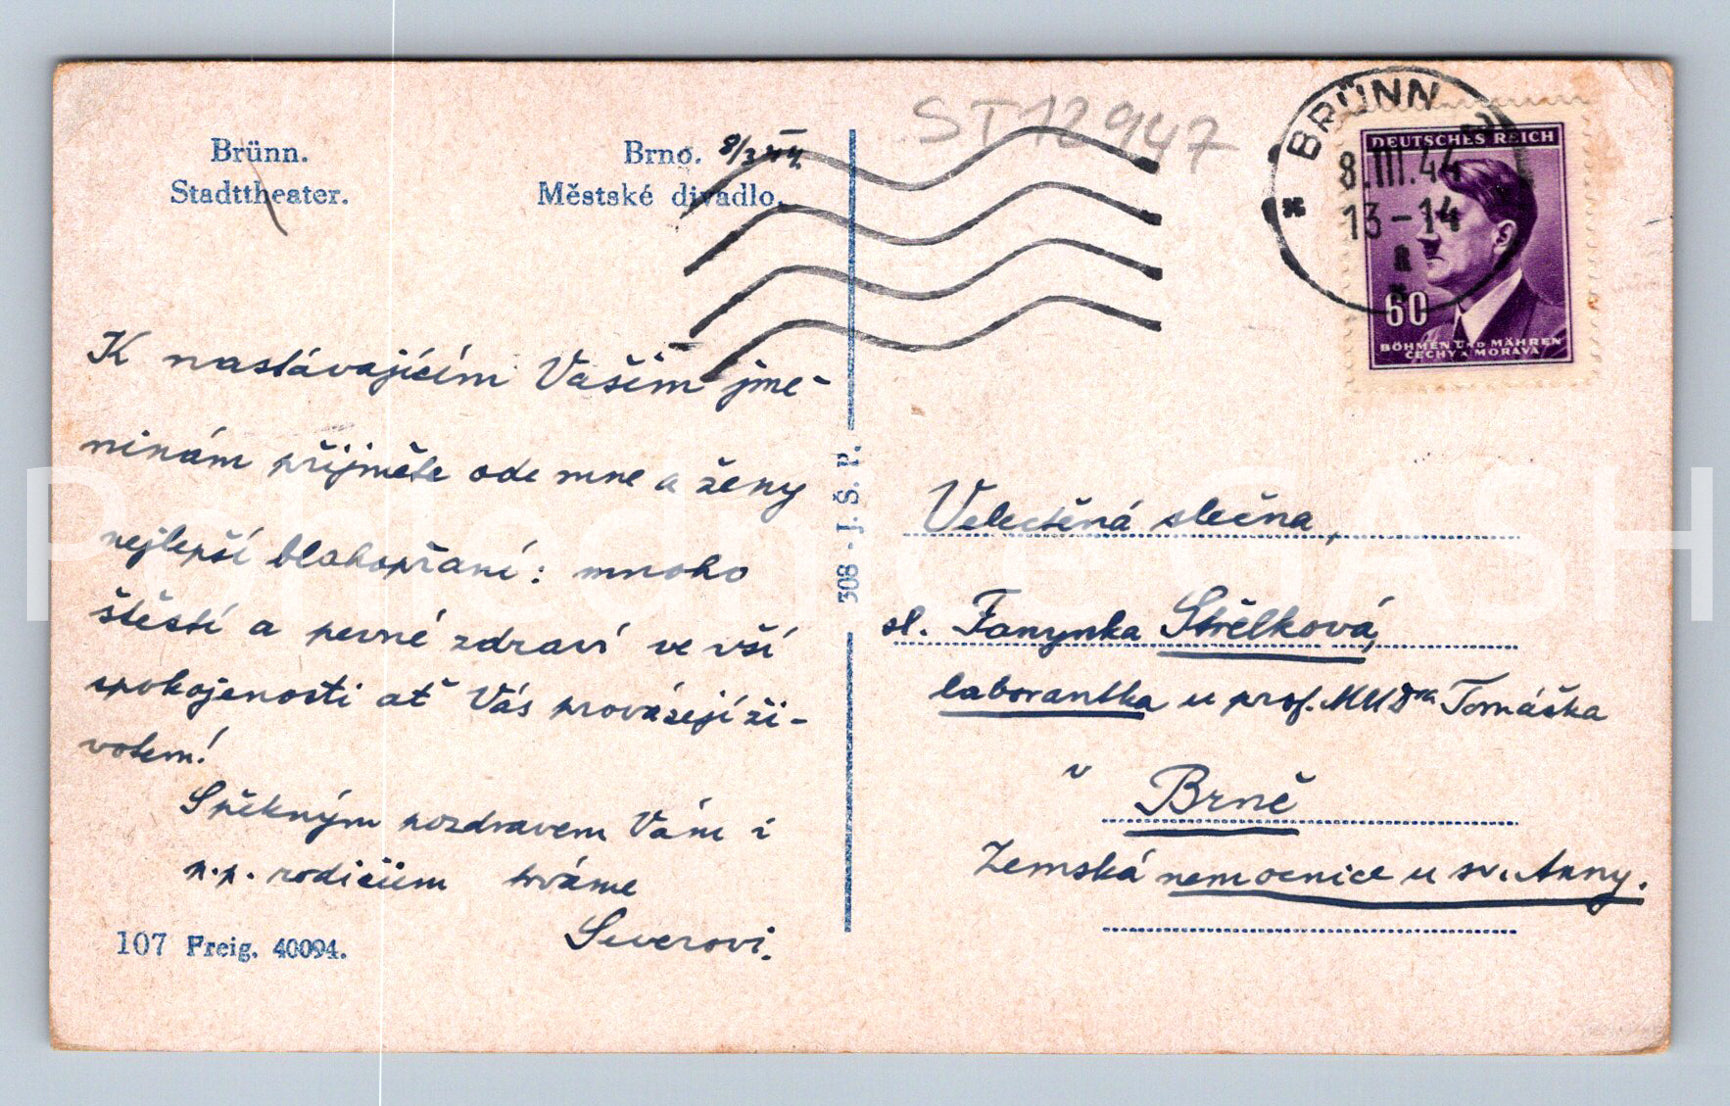 Brünn.
Stadttheater.
Brno. 8/3 44.
Městské divadlo.
ST12947
BRÜNN
8.III.44
13-14
a
DEUTSCHES REICH
60
BÖHMEN UND MÄHREN
ČECHY A MORAVA
K nastávajícím Vašim jme-
ninám přijměte ode mne a ženy
nejlepší blahopřání: mnoho
štěstí a pevné zdraví ve vší
spokojenosti ať Vás provázejí ži-
votem!
S pěkným pozdravem Vám i
p.p. rodičům trváme
Severovi.
107 Freig. 40094.
308 - J. Š. P.
Velectěná slečna,
sl. Fanynka Střelková,
laborantka u prof. MUDra Tomáška
v Brně
Zemská nemocnice u sv. Anny.